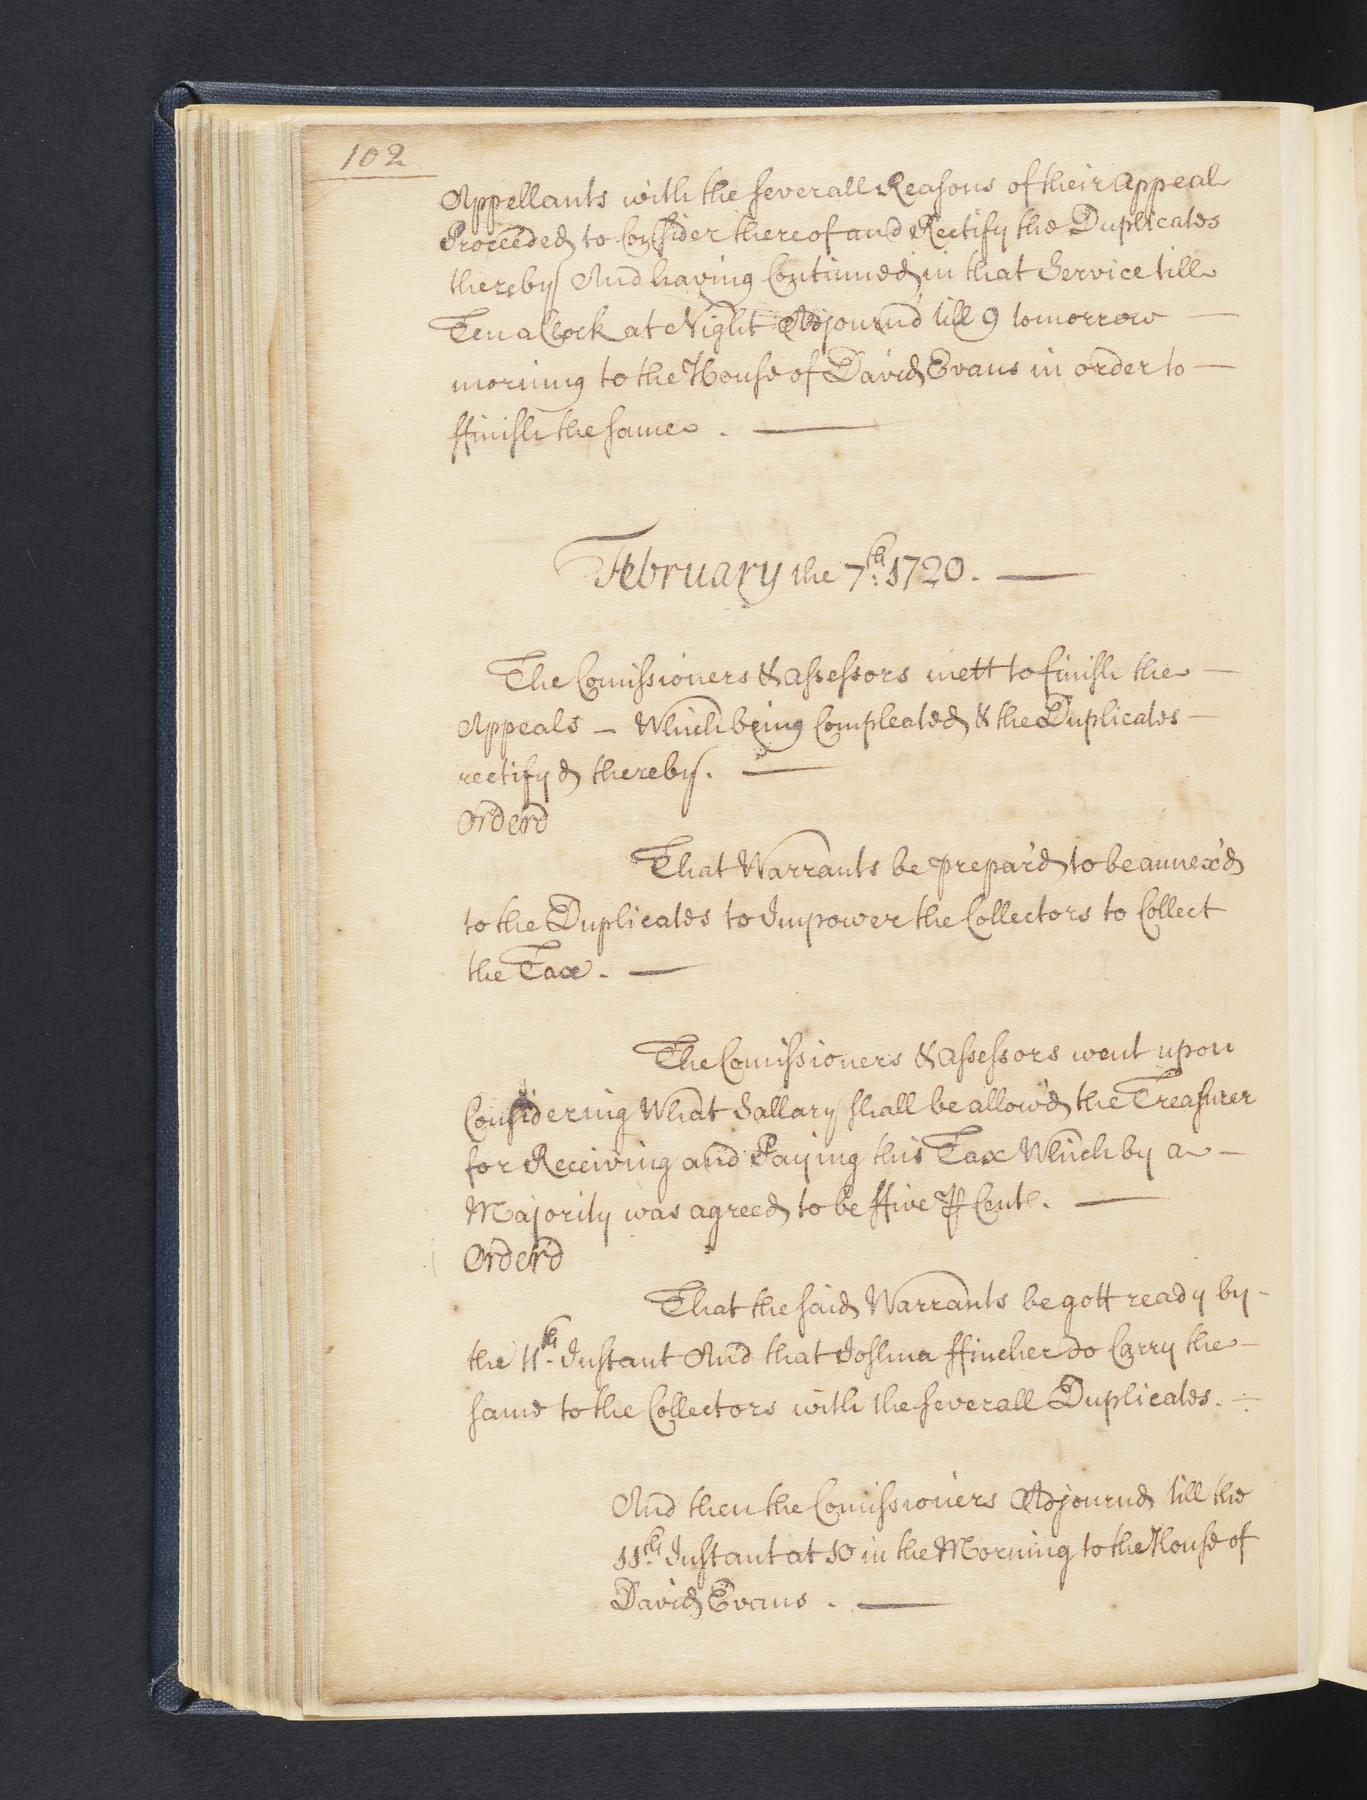 102
Appellants with the severall Reasons of their Appeal
Proceeded to Consider thereof and Rectify the Duplicates
thereby And having Continued in that Service till
Ten a Clock at Night Adjournd till 9 tomorrow —
morning to the House of David Evans in order to —
ffinish the same . —
February the 7th: 1720. —
The Comissioners & Assessors mett to finish the —
Appeals — Which being Compleated & the Duplicates —
rectifyd thereby. —
Orderd
That Warrants be prepar'd to be annex'd
to the Duplicates to Impower the Collectors to Collect
the Tax. —
The Comissioners & Assessors went upon
Considering What Sallary shall be allow'd the Treasurer
for Receiving and Paying this Tax Which by a —
Majority was agreed to be ffive ⅌ Cent. —
Order'd
That the said Warrants be gott ready by -
the 11th. Instant And that Joshua ffincher do Carry the —
same to the Collectors with the severall Duplicates. ÷
And then the Comissioners Adjournd till the
11th. Instant at 10 in the Morning to the House of
David Evans . —